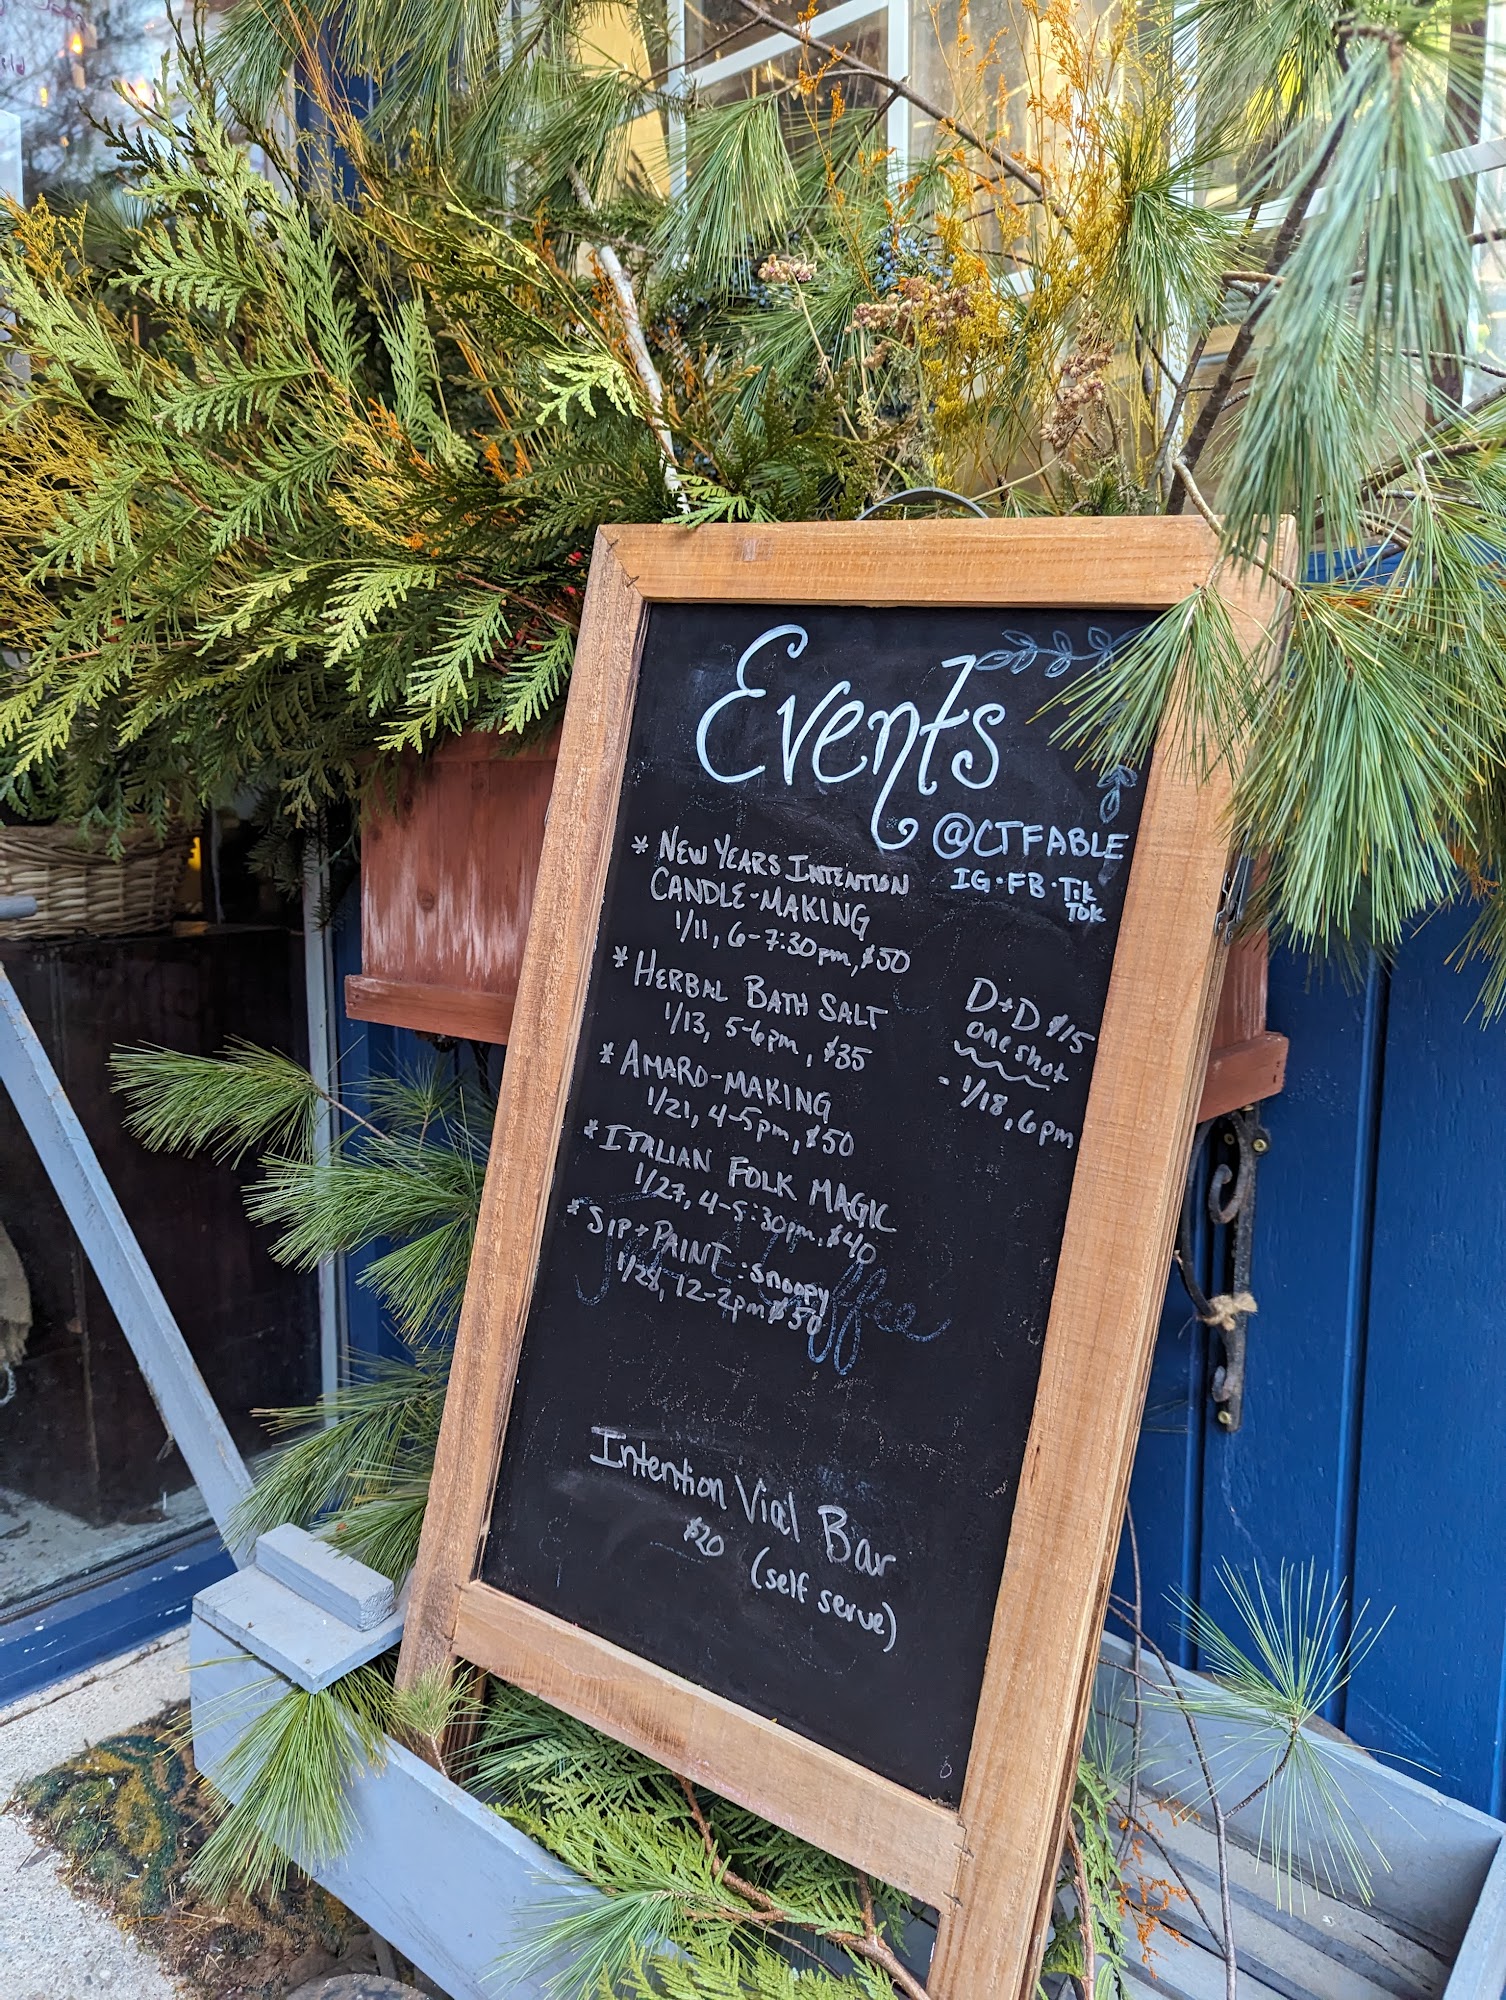 Events
@CTFABLE
IG·FB·Tik
Tok
* NEW YEARS INTENTION
CANDLE-MAKING
1/11, 6-7:30pm, $50
* HERBAL BATH SALT
1/13, 5-6pm, $35
* AMARO-MAKING
1/21, 4-5pm, $50
* ITALIAN FOLK MAGIC
1/27, 4-5:30pm, $40
* SIP + PAINT: Snoopy
1/28, 12-2pm $50
D+D $15
one shot
- 1/18, 6pm
Intention Vial Bar
$20 (self serve)